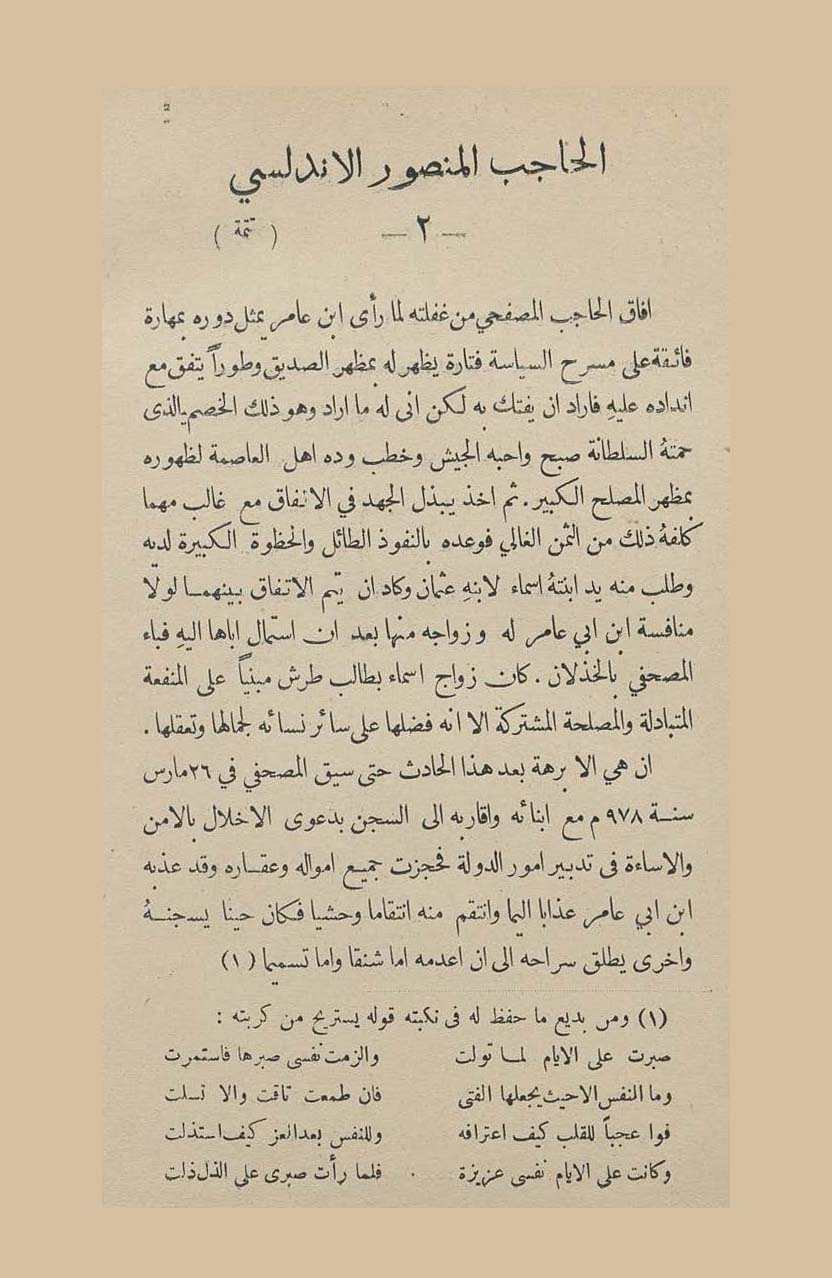 الحاجب المنصور الاندلسي
— ٢ — ( تتمة )
افاق الحاجب المصفحي من غفلته لما رأى ابن عامر يمثل دوره بمهارة
فائقة على مسرح السياسة فتارة يظهر له بمظهر الصديق وطوراً يتفق مع
انداده عليه فاراد ان يفتك به لكن انى له ما اراد وهو ذلك الخصم الذى
حمتهُ السلطانة صبح واحبه الجيش وخطب وده اهل العاصمة لظهوره
بمظهر المصلح الكبير . ثم اخذ يبذل الجهد في الاتفاق مع غالب مهما
كلفهُ ذلك من الثمن الغالي فوعده بالنفوذ الطائل والحظوة الكبيرة لديه
وطلب منه يد ابنتهُ اسماء لابنهِ عثمان وكاد ان يتم الاتفاق بينهمـا لولا
منافسة ابن ابي عامر له وزواجه منها بعد ان استمال اباها اليهِ فباء
المصحفي بالخذلان . كان زواج اسماء بطالب طرش مبنياً على المنفعة
المتبادلة والمصلحة المشتركة الا انه فضلها على سائر نسائه لجمالها وتعقلها .
ان هي الا برهة بعد هذا الحادث حتى سيق المصحفي في ٢٦ مارس
سنـة ٩٧٨ م مع ابنائه واقاربه الى السجن بدعوى الاخلال بالامن
والاساءة فى تدبير امور الدولة فحجزت جميع امواله وعقـاره وقد عذبه
ابن ابي عامر عذابا اليما وانتقم منه انتقاما وحشيا فكان حينا يسجنـهُ
واخرى يطلق سراحه الى ان اعدمه اما شنقا واما تسميما (١)
(١) ومن بديع ما حفظ له فى نكبته قوله يستريح من كربته :
صبرت على الايام لمـا تولت والزمت نفسى صبرها فاستمرت
وما النفس الا حيث يجعلها الفتى فان طمعت تاقت والا تسلت
فوا عجباً للقلب كيف اعترافه وللنفس بعد العز كيف استذلت
وكانت على الايام نفسى عزيزة فلما رأت صبرى على الذل ذلت